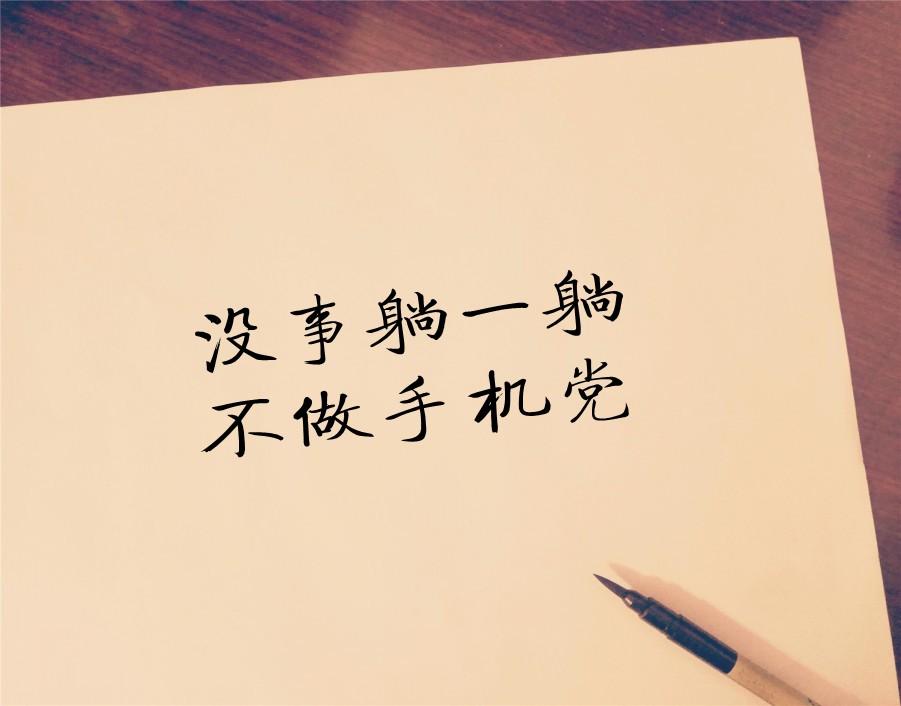 没事躺一躺
不做手机党